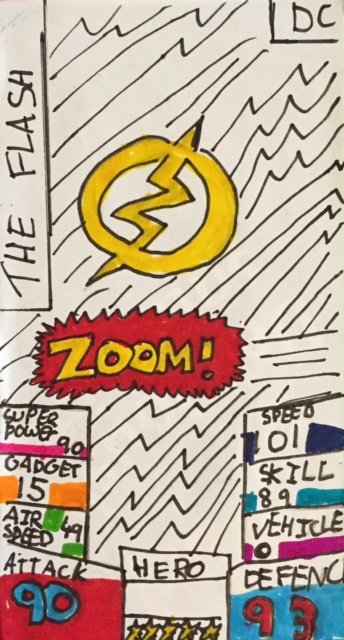 DC
THE FLASH
ZOOM!
SUPER
POWER 90
GADGET
15
AIR
SPEED 49
ATTACK
90
HERO
SPEED
101
SKILL
89
VEHICLE
0
DEFENC
93